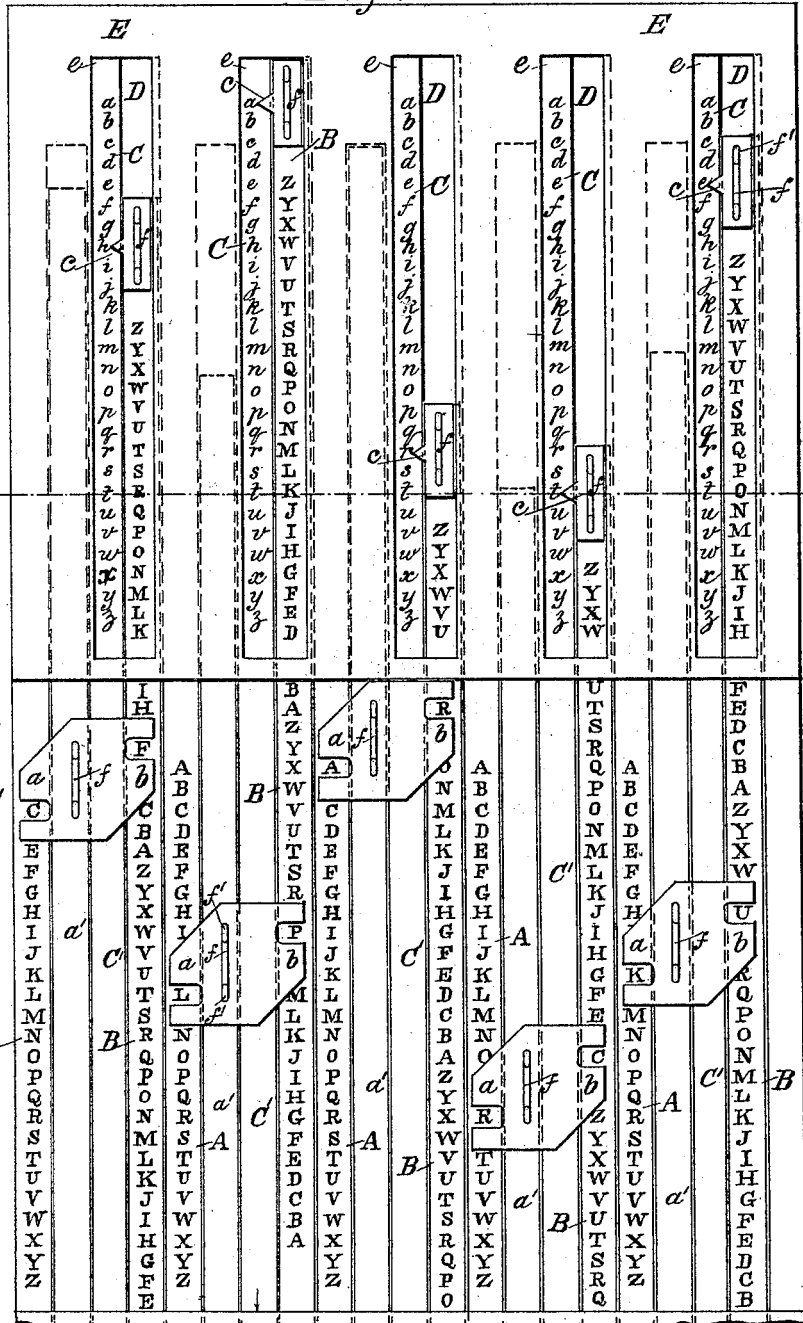 E E
e D C c f
a b c d e f g h i j k l m n o p q r s t u v w x y z
Z Y X W V U T S R Q P O N M L K
e c f B C
a b c d e f g h i j k l m n o p q r s t u v w x y z
Z Y X W V U T S R Q P O N M L K J I H G F E D
e D C c f
a b c d e f g h i j k l m n o p q r s t u v w x y z
Z Y X W V U
e D C c f
a b c d e f g h i j k l m n o p q r s t u v w x y z
Z Y X W
e D C f' f c
a b c d e f g h i j k l m n o p q r s t u v w x y z
Z Y X W V U T S R Q P O N M L K J I H
a C E F G H I J K L M N O P Q R S T U V W X Y Z
f a' C' B
I H F b C B A Z Y X W V U T S R Q P O N M L K J I H G F E
A B C D E F G H I a L N O P Q R S T U V W X Y Z
f' f f' B a' C' A
B A Z Y X W V U T S R P b M L K J I H G F E D C B A
a A C D E F G H I J K L M N O P Q R S T U V W X Y Z
f C' a' A B
R b O N M L K J I H G F E D C B A Z Y X W V U T S R Q P O
A B C D E F G H I J K L M N O a R T U V W X Y Z
C' A f a' B
U T S R Q P O N M L K J I H G F E C b Z Y X W V U T S R Q
A B C D E F G H a K M N O P Q R S T U V W X Y Z
f C' B A a'
F E D C B A Z Y X W U b R Q P O N M L K J I H G F E D C B